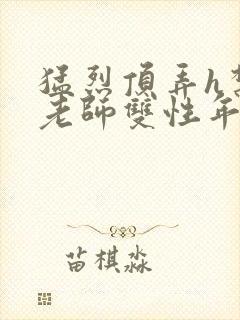 猛烈頂弄h
老師雙性年
苗棋淼